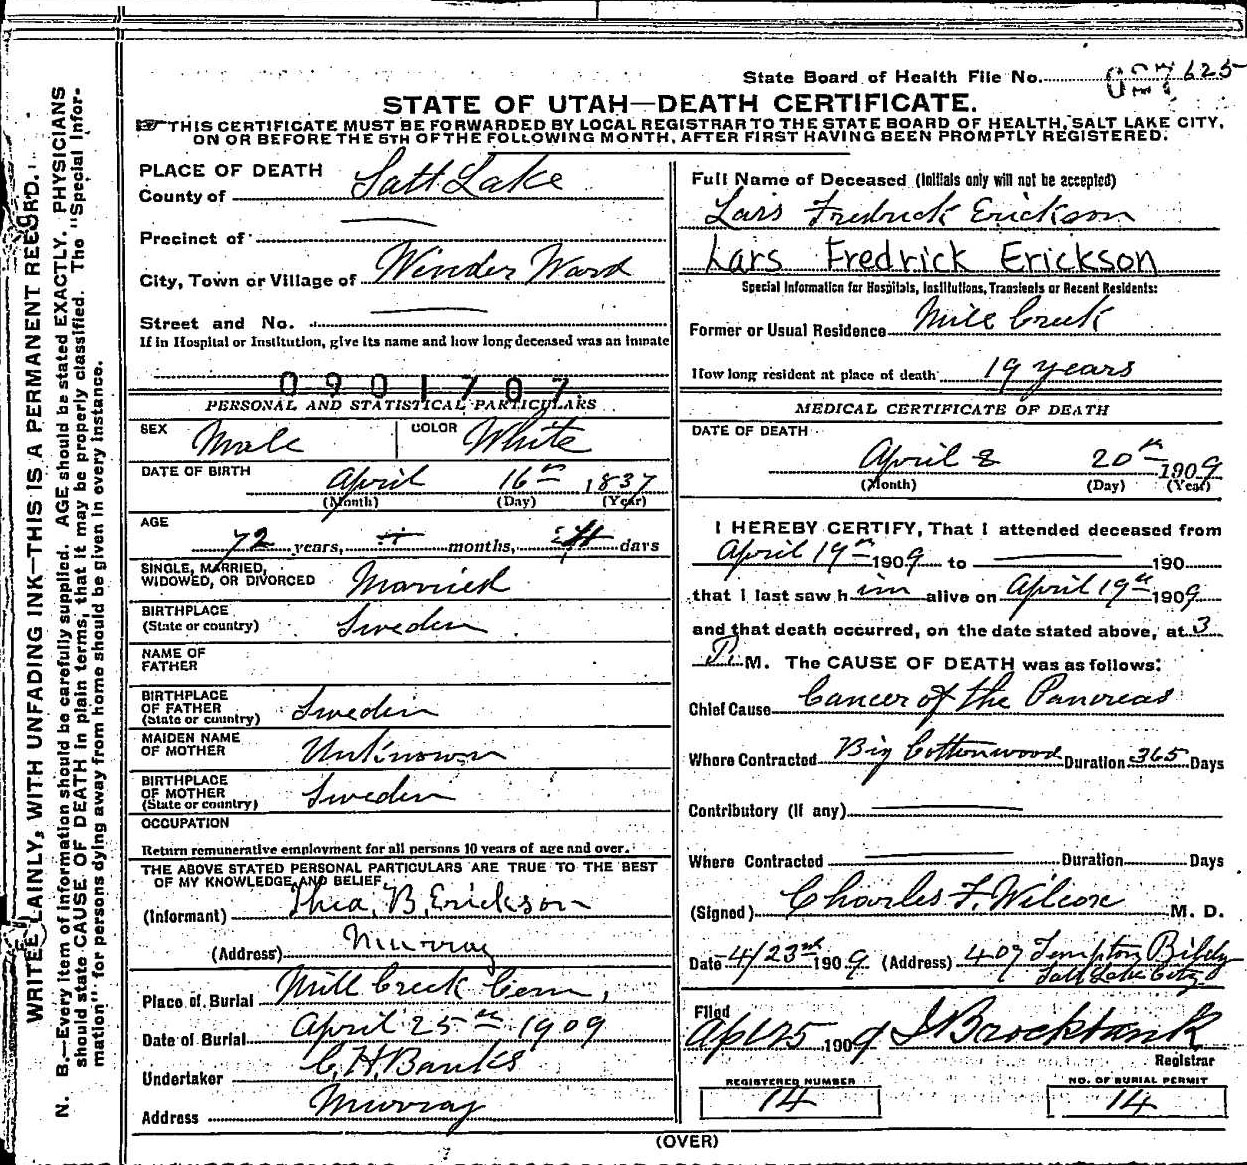 State Board of Health File No. 625
STATE OF UTAH—DEATH CERTIFICATE.
THIS CERTIFICATE MUST BE FORWARDED BY LOCAL REGISTRAR TO THE STATE BOARD OF HEALTH, SALT LAKE CITY,
ON OR BEFORE THE 5TH OF THE FOLLOWING MONTH, AFTER FIRST HAVING BEEN PROMPTLY REGISTERED.
PLACE OF DEATH
County of Salt Lake
Precinct of
City, Town or Village of Winder Ward
Street and No.
If in Hospital or Institution, give its name and how long deceased was an inmate
0901707
PERSONAL AND STATISTICAL PARTICULARS
SEX Male COLOR White
DATE OF BIRTH April 16th 1837
(Month) (Day) (Year)
AGE
72 years, months, days
SINGLE, MARRIED,
WIDOWED, OR DIVORCED Married
BIRTHPLACE
(State or country) Sweden
NAME OF
FATHER
BIRTHPLACE
OF FATHER
(State or country) Sweden
MAIDEN NAME
OF MOTHER Unknown
BIRTHPLACE
OF MOTHER
(State or country) Sweden
OCCUPATION
Return remunerative employment for all persons 10 years of age and over.
THE ABOVE STATED PERSONAL PARTICULARS ARE TRUE TO THE BEST
OF MY KNOWLEDGE AND BELIEF
(Informant) Thea B. Erickson
(Address) Murray
Place of Burial Mill Creek Cem,
Date of Burial April 25th 1909
Undertaker C. H. Banks
Address Murray
Full Name of Deceased (Initials only will not be accepted)
Lars Fredrick Erickson
Lars Fredrick Erickson
Special Information for Hospitals, Institutions, Transients or Recent Residents:
Former or Usual Residence Mill Creek
How long resident at place of death 19 years
MEDICAL CERTIFICATE OF DEATH
DATE OF DEATH
April 20th 1909
(Month) (Day) (Year)
I HEREBY CERTIFY, That I attended deceased from
April 19th 1909 to 190
that I last saw him alive on April 19th 1909
and that death occurred, on the date stated above, at 3
P. M. The CAUSE OF DEATH was as follows:
Chief Cause Cancer of the Pancreas
Where Contracted Big Cottonwood Duration 365 Days
Contributory (If any)
Where Contracted Duration Days
(Signed) Charles F. Wilcox M. D.
Date 4/23rd 1909 (Address) 407 Templton Bldg
Salt Lake City
Filed
Apl 25 1909 J Brockbank
Registrar
REGISTERED NUMBER
14
NO. OF BURIAL PERMIT
14
(OVER)
WRITE PLAINLY, WITH UNFADING INK—THIS IS A PERMANENT RECORD.
N. B.—Every item of information should be carefully supplied. AGE should be stated EXACTLY. PHYSICIANS
should state CAUSE OF DEATH in plain terms, that it may be properly classified. The "Special Infor-
mation" for persons dying away from home should be given in every instance.